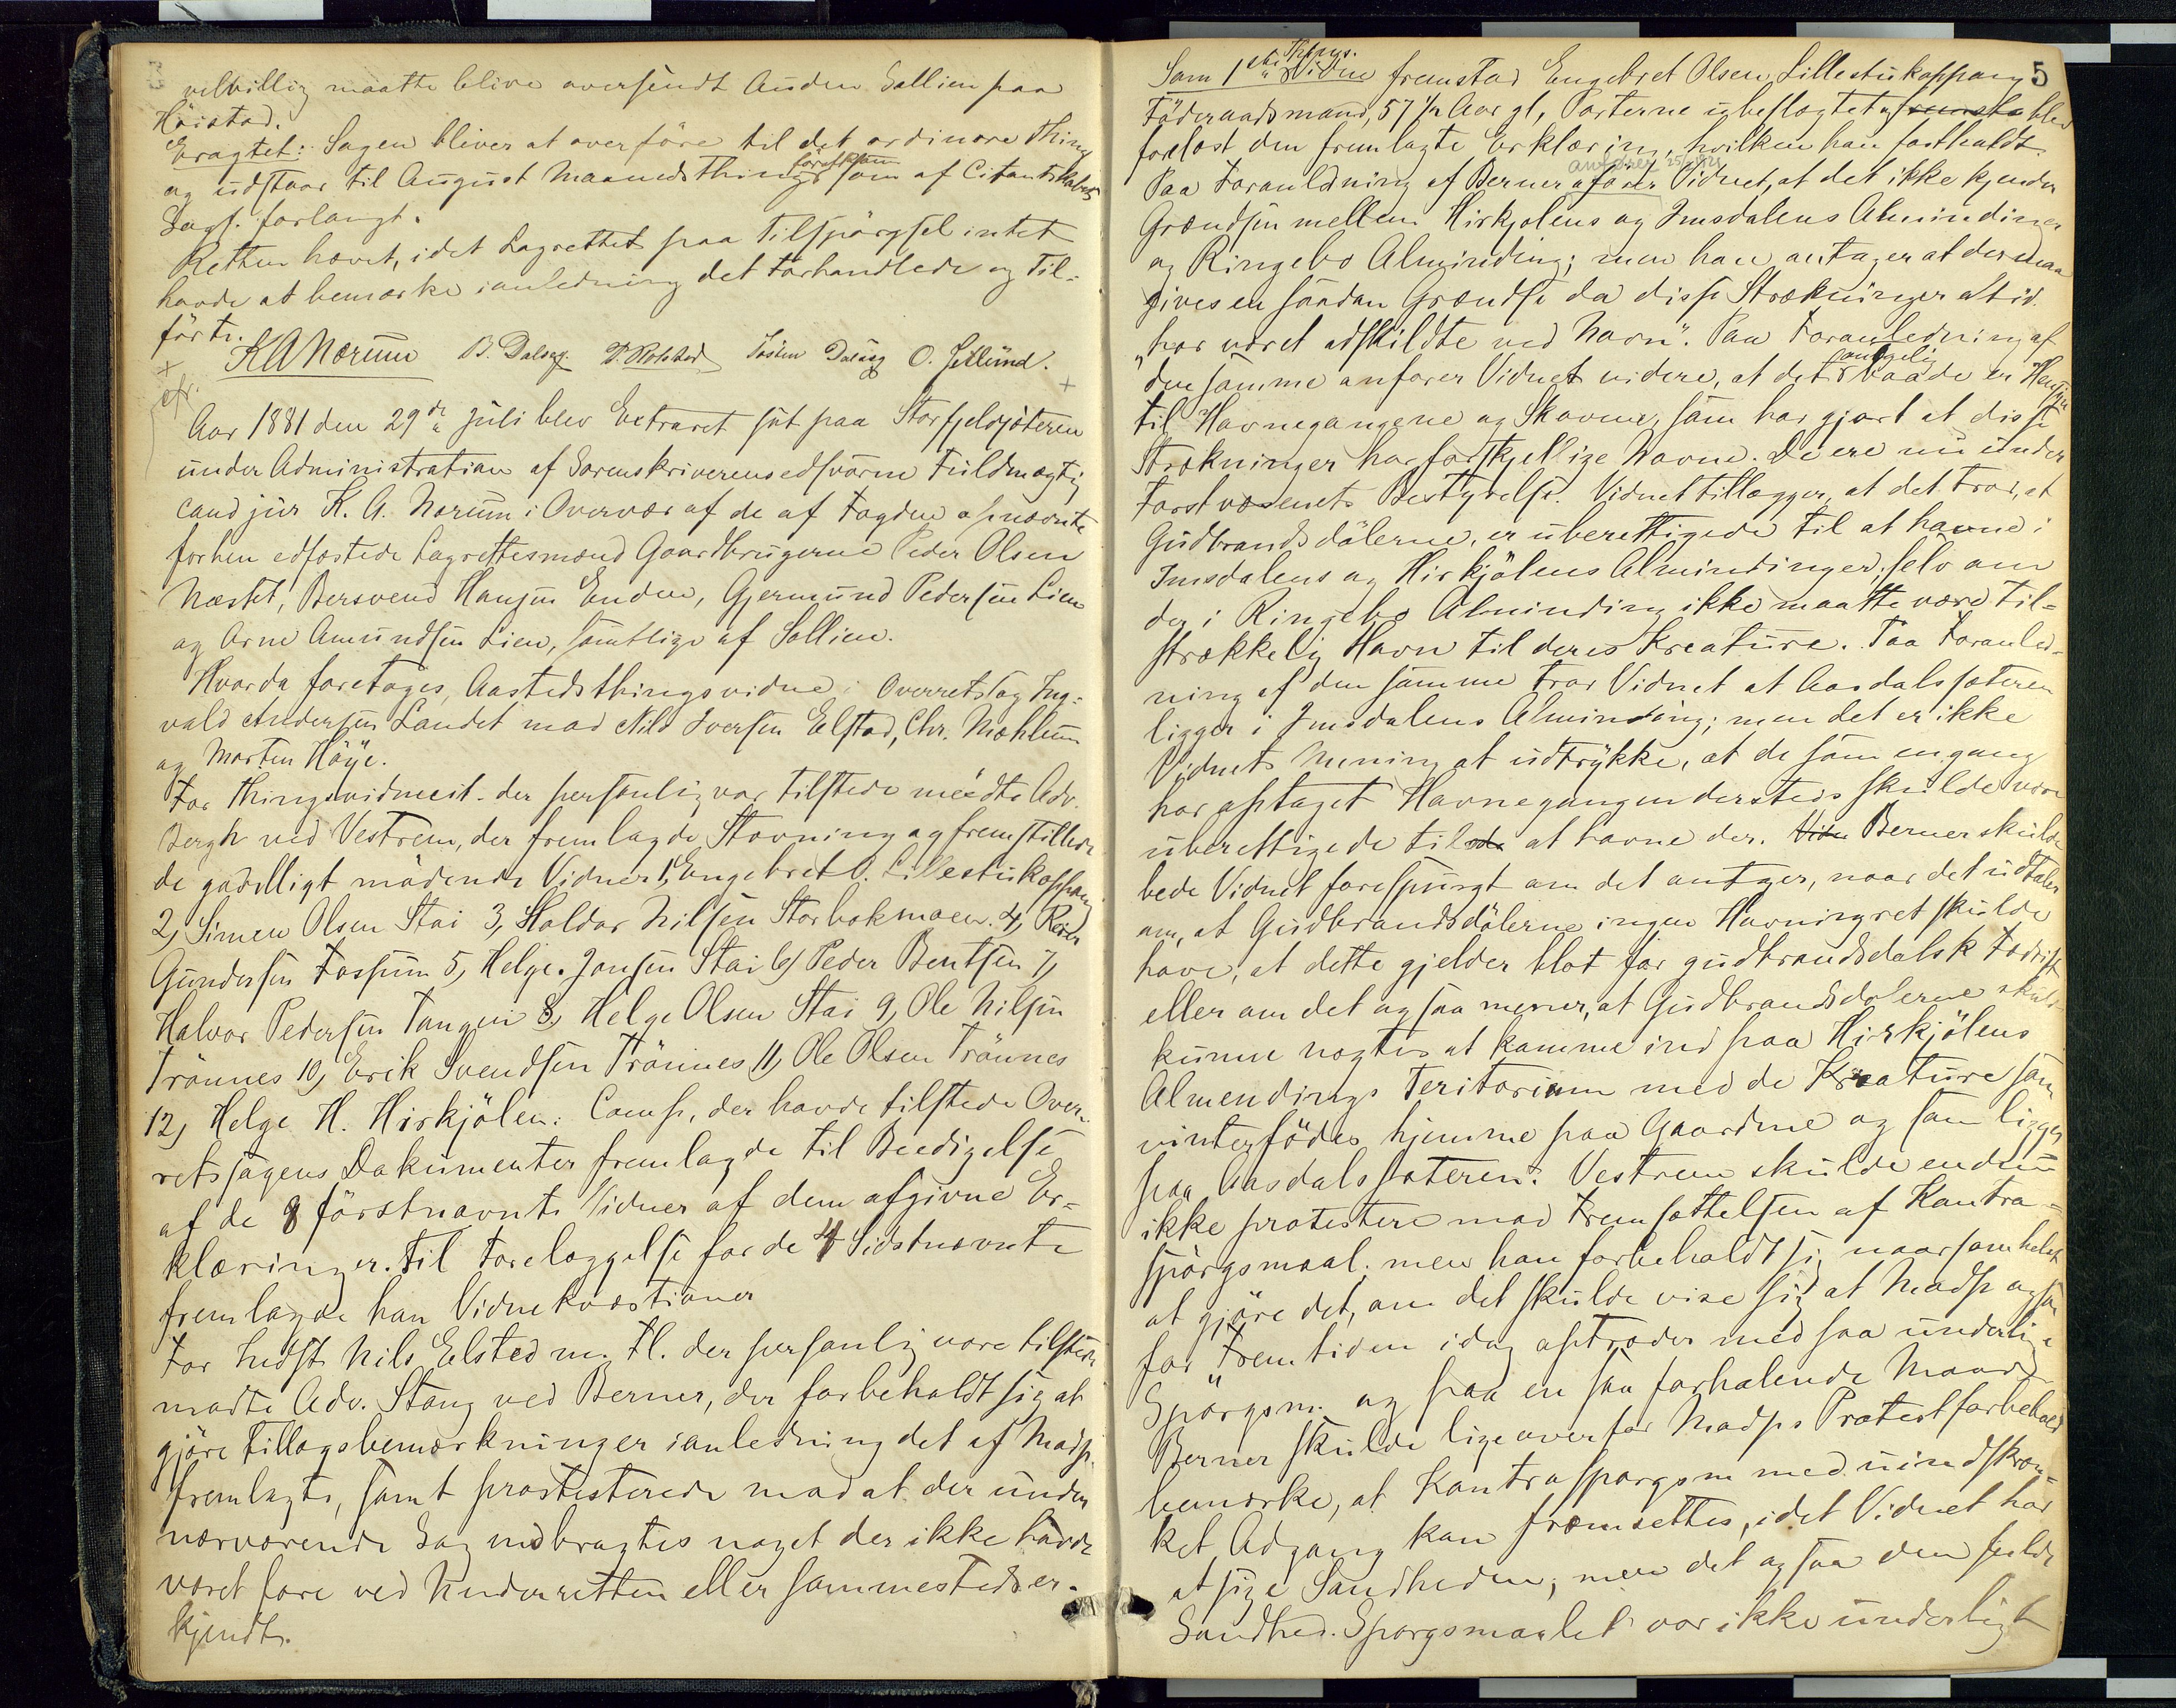 velvillig maatte blive oversendt Auden Sollien paa
Höistad.
Eragtet: Sagen bliver at overföre til det ordinære Thing
og udstaar til August Maanedsthing förstkom som af Citantskabets
Sagf. forlangt.
Retten hævet, idet Lagrettet paa Tilspörgsel intet
havde at bemærke i anledning det Forhandlede og Til-
förte.
K A Nærum B. Dalseg. P. Rolstad Tosten Dalseg O. Jetlund.
cfr.
Aar 1881 den 29de Juli blev Extraret sat paa Storfjeldsæteren
under Administration af Sorenskriverens edsvorne Fuldmægtig
cand jur K. A. Nærum i Overvær af de af Fogden opnævnte
forhen edfæstede Lagrettesmænd Gaardbrugerne Peder Olsen
Næstet, Bersvend Hansen Enden, Gjermund Pedersen Lien
og Arne Amundsen Lien, samtlige af Sollien.
Hvorda foretoges, Aastedsthingsvidne i Overrets Sag Ing-
vald Andersen Landet mod Nils Iversen Elstad, Chr. Mæhlum
og Morten Höye.
For Thingsvidnecit. der personlig var tilstede mödte Adv.
Bergh ved Vestrem, der fremlagde Stævning og fremstillede
de godvilligt mödende Vidner 1, Engebret O. Lillestukoppang
2, Simen Olsen Stai 3, Haldor Nilsen Storbekmoen. 4, Reier
Gundersen Fossum 5, Helge Jonsen Stai 6) Peder Bentsen 7,
Halvor Pedersen Tangen 8, Helge Olsen Stai 9, Ole Nilsen
Trönnes 10, Erik Svendsen Trönnes 11, Ole Olsen Trönnes
12, Helge H. Hirkjölen: Comp. der havde tilstede Over-
retssagens Dokumenter fremlagde til Beedigelse
af de 8 förstnævnte Vidner af dem afgivne Er-
klæringer. Til Foreloggelse for de 4 Sidstnævnte
fremlagde han Vidnekvæstioner
For Indst. Nils Elsted m. Fl. der personlig vare tilstede
mødte Adv. Stang ved Berner, der forbeholdt sig at
gjöre Tillægsbemærkninger i anledning det af Modp.
fremlagte, samt protesterede mod at der under
nærværende Sag indbragtes noget der ikke havde
været fore ved Underretten eller sammesteds er-
kjendt.
5
Som 1ste Thgvs. Vidne fremstod Engebret Olsen Lillestukoppang
Föderaadsmand, 57 1/2 Aar gl, Parterne ubeslægtet og blev
forelæst den fremlagte Erklæring, hvilken han fastholdt.
anförer 25/5 1921
Paa Foranledning af Berner Vidnet, at det ikke kjender
Grændsen mellem Hirkjølens og Imsdalens Alminding
og Ringebo Alminding; men han antager at der maa
gives en saadan Grændse da disse Strækninger altid
"har været adskildte ved Navn". Paa Foranledning af
den samme anfører Vidnet videre, at det antagelig baade er Hensyn
til Havnegangene og Skovene, som har gjort at disse
Strækninger har forskjellige Navne. De ere nu under
Forstvæsenets Bestyrelse. Vidnet tillægger, at det tror, at
Gudbrandsdölerne, er uberettigede til at havne i
Imsdalens og Hirkjölens Almindinger, selv om
der i Ringebo Alminding ikke maatte være til-
strækkelig Havn til deres Kreature. Paa Foranled-
ning af den samme tror Vidnet at Aasdalssæteren
ligger i Imsdalens Alminding; men det er ikke
Vidnets Mening at udtrykke, at de som engang
har optaget Havnegangen dersteds skulde være
uberettigede til at havne der. Vidn Berner skulde
bede Vidnet forespurgt om det antager, naar det udtaler
om, at Gudbrandsdölerne ingen Havningsret skulde
have, at dette gjelder blot for gudbrandsdalsk Fædrift
eller om det ogsaa mener, at Gudbrandsdølerne skulde
kunne nægtes at komme ind paa Hirkjölens
Almendings Teritorium med de Kreature som
vinterfödes hjemme paa Gaardene og som ligger
paa Aasdalssæteren? Vestrem skulde endnu
ikke protestere mod Fremsættelsen af Kontra-
spörgsmaal; men han forbeholdt sig naarsomhelst
at gjöre det, om det skulde vise sig at Modp ogsaa
for Fremtiden idag optræder med saa underlige
"Spørgsm." og paa en saa forhalende Maade
Berner skulde ligeoverfor Modps Protestforbehold
bemærke, at Kontraspørgsm med uindskræn-
ket Adgang kan fremsettes, idet Vidnet har
at sige Sandheden; men det ogsaa den fulde
Sandhed. Spørgsmaalet var ikke underligt